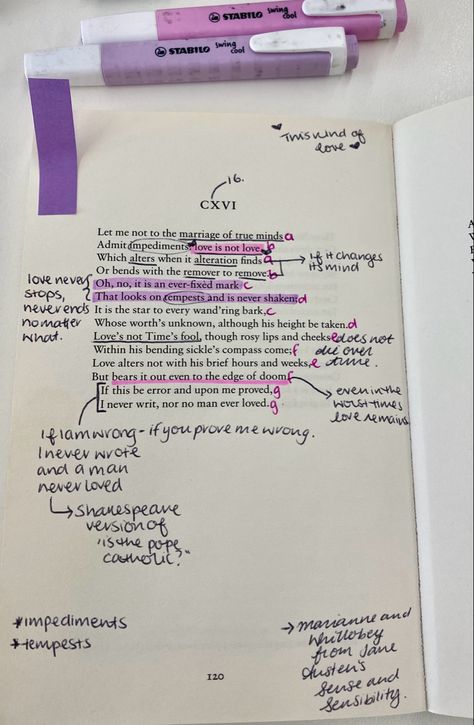 STABILO swing cool
STABILO swing cool
This kind of
love
16.
CXVI
Let me not to the marriage of true minds a
Admit impediments; love is not love b
Which alters when it alteration finds a
Or bends with the remover to remove. b
if it changes
its mind
Oh, no, it is an ever-fixèd mark c
That looks on tempests and is never shaken; d
love never
stops,
never ends
no matter
what.
It is the star to every wand'ring bark, c
Whose worth's unknown, although his height be taken. d
Love's not Time's fool, though rosy lips and cheeks e
Within his bending sickle's compass come; f
Love alters not with his brief hours and weeks, e
does not
die over
time.
But bears it out even to the edge of doom. f
If this be error and upon me proved, g
I never writ, nor no man ever loved. g
even in the
worst times
love remains
If I am wrong - if you prove me wrong.
I never wrote
and a man
never loved
Shakespeare
version of
"is the pope
catholic?"
*impediments
*tempests
marianne and
whillobey
from Jane
Austen's
Sense and
Sensibility.
120